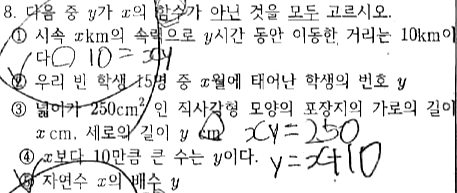 8. 다음 중 y가 x의 함수가 아닌 것을 모두 고르시오.
① 시속 xkm의 속력으로 y시간 동안 이동한 거리는 10km이
다 10=xy
② 우리 빈 학생 15명 중 x월에 태어난 학생의 번호 y
③ 넓이가 250cm² 인 직사각형 모양의 포장지의 가로의 길이
x cm. 세로의 길이 y cm xy=250
④ x보다 10만큼 큰 수는 y이다. y=x+10
⑤ 자연수 x의 배수 y